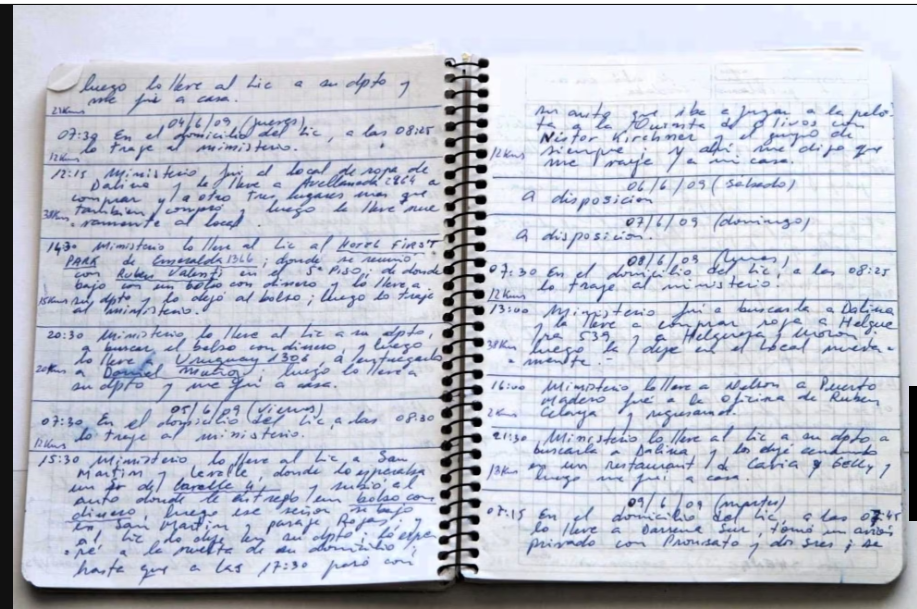 luego lo lleve al Lic a su dpto y
me fui a casa.
21Kms
04/6/09 (jueves)
07:30 En el domicilio del Lic, a las 08:25
lo traje al ministerio.
12Kms
12:15 Ministerio fui al local de ropa de
Dalina y la lleve a Avellaneda 2964 a
comprar y a otro tres lugares mas que
tambien compró. luego la lleve nue
vamente al local.
14:30 Ministerio lo lleve al Lic al HOTEL FIRST
PARK de Esmeralda 1366; donde se reunió
con Ruben Valenti en el 5º Piso; de donde
bajo con un bolso con dinero y lo lleve a
15Kms su dpto y lo dejó al bolso; luego lo traje
al ministerio.
20:30 Ministerio lo lleve al Lic a su dpto,
a buscar el bolso con dinero y luego
lo lleve a Uruguay 1306 a entregarlo
20Kms a Daniel Muñoz; luego lo lleve a
su dpto y me fui a casa.
05/6/09 (viernes)
07:30 En el domicilio del Lic, a las 08:30
lo traje al ministerio.
12Kms
15:30 Ministerio lo lleve al Lic a San
Martin y Lavalle, donde lo esperaba
un Sr del Lavalle y subió al
auto donde le entregó un bolso con
dinero, luego ese señor se bajo
en San Martin y pasaje Rojas, y
al Lic lo deje en su dpto; lo espe
ré a la vuelta de su domicilio
hasta que a las 17:30 pasó con
su auto que iba a jugar a la pelo
ta a la Quinta de Olivos con
Néstor Kirchner y el grupo de
12Kms siempre y ahí me dijo que
me vaya y a mi casa.
06/6/09 (sabado)
A disposición
07/6/09 (domingo)
A disposición.
08/6/09 (lunes)
07:30 En el domicilio del Lic, a las 08:25
lo traje al ministerio.
12Kms
13:00 Ministerio fui a buscarla a Dalina
y la lleve a comprar ropa a Helgue
ra 539 y a Helguera
38Kms luego la deje en el local nueva-
mente.
16:00 Ministerio lo lleve a Nelson a Puerto
Madero fué a la oficina de Ruben
2Kms y regresamos.
21:30 Ministerio lo lleve al Lic a su dpto a
buscarla a Dalina y los dejé cenando
13Km en un restaurant de Cabia y Gelly y
luego me fui a casa.
09/6/09 (martes)
07:15 En el domicilio del Lic a las 07:45
lo lleve a Baires Sur, tomó un avión
privado con y dos Sres; se